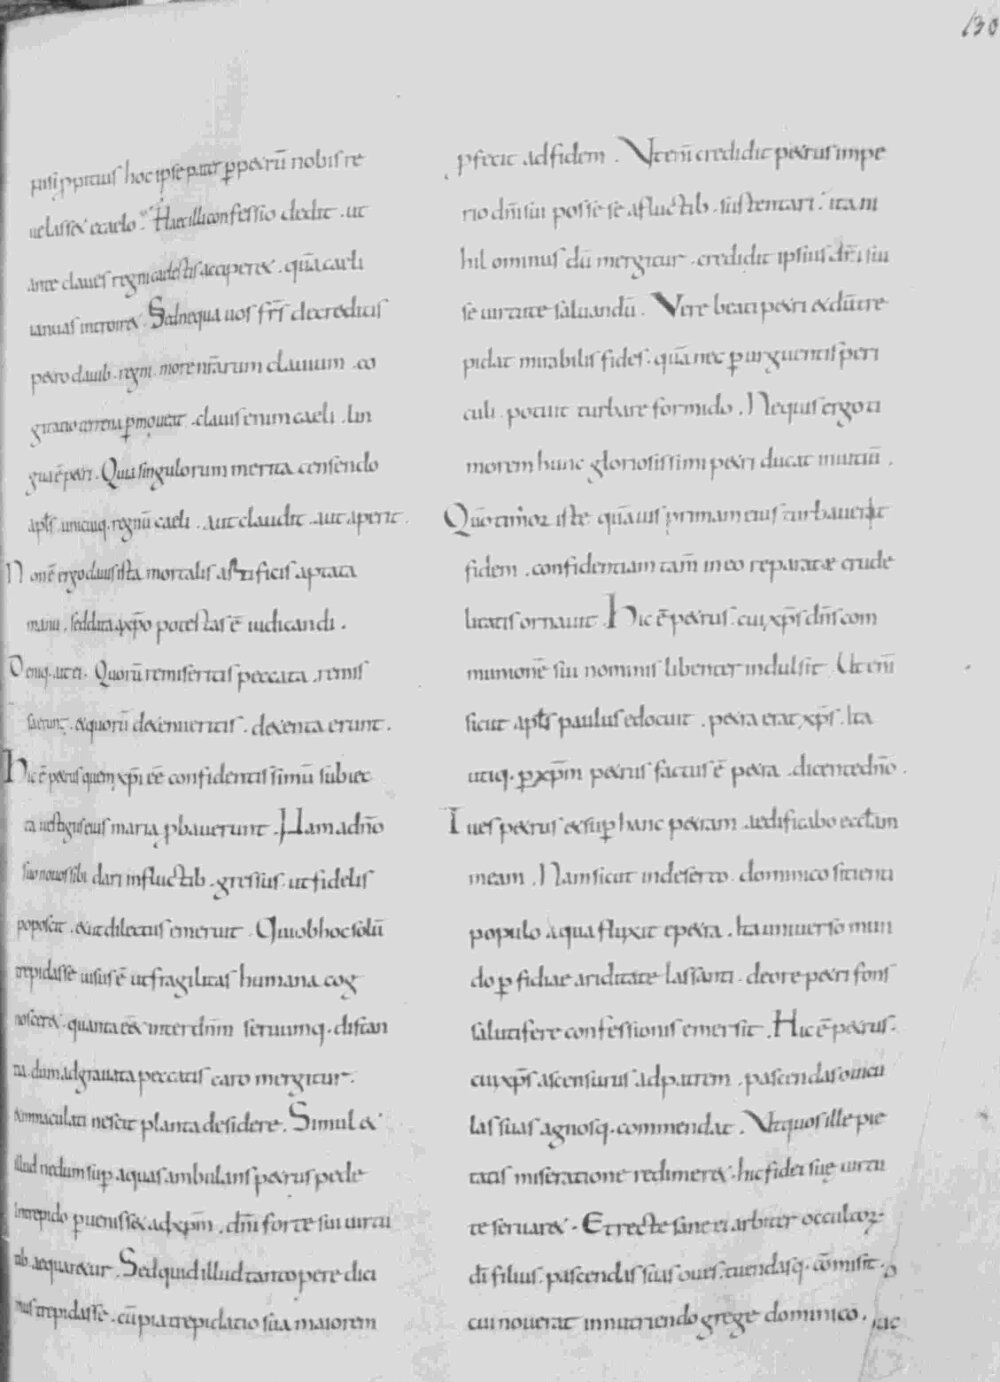 130
nisi ꝓpitius hoc ipse pater ꝑ petrū nobis re
uelasset ecaelo. Haec illi confessio dedit. ut
ante claues regni caelestis acciperet. quā caeli
ianuas introiret. Sed nequa uos fr̄s decreditis
petro clauib. regni. more nr̄arum clauium. co
gitatio terrena ꝑmoueat. clauis enim caeli. lin
gua ē petri. Quia singulorum merita censendo
apl̄s. unicuiq. regnū caeli. aut claudit. aut aperit.
Non ē ergo clauis ista mortalis artificis aptata
manu. sed data axp̄o potestas ē iudicandi.
Deniq. ait ei. Quorū remiseritis peccata. remis
sa erunt. & quorū detenueritis. detenta erunt.
Hic ē petrus quem xp̄i ēē confidentis simū subiec
ta uestigiis eius maria ꝓbauerunt. Nam adn̄o
suo nouos sibi dari influctib. gressus. ut fidelis
poposcit. & ut dilectus emeruit. Qui obhoc solū
trepidasse uisus ē ut fragilitas humana cog
nosceret. quanta eēt inter dn̄m seruumq. distan
tia. dum adgrauata peccatis caro mergitur.
& inmaculati nescit planta desidere. Simul &
illud nedum suꝑ aquas ambulans petrus pede
intrepido ꝑuenisset adxp̄m. dn̄i forte sui uirtu
tib. aequaretur. Sed quid illud tantopere dici
mus trepidasse. cū pia trepidatio sua maiorem
ꝓfecit ad fidem. Vt enī credidit petrus impe
rio dn̄i sui posse se afluctib. sustentari. ita ni
hil ominus dū mergitur. credidit ipsius dn̄i sui
se uirtute saluandū. Vere beati petri & dū tre
pidat mirabilis fides. quā nec ꝑ urguentis peri
culi. potuit turbare formido. Nequis ergo ti
morem hunc gloriosissimi petri ducat inuitiū.
Quo timor iste quāuis primam eius turbauerit
fidem. confidentiam tam̄ in eo reparatæ crude
litatis ornauit. Hic ē petrus. cui xp̄s dn̄s com
munionē sui nominis libenter indulsit. Ut enī
sicut apl̄s paulus edocuit. petra erat xp̄s. Ita
utiq. ꝑ xp̄m petrus factus ē petra. dicente dn̄o.
Tu es petrus & suꝑ hanc petram aedificabo eccl̄am
meam. Nam sicut in deserto dominico sitienti
populo aqua fluxit epetra. Ita uniuerso mun
do ꝑfidiae ariditate lassanti. de ore petri fons
salutifere confessionis emersit. Hic ē petrus.
cui xp̄s ascensurus ad patrem. pascendas ouicu
las suas agnosq. commendat. Vt quos ille pie
tatis miseratione redimeret. hic fidei suę uirtu
te seruaret. Et recte sane ei arbiter occultoꝝ
dī filius. pascendas suas oues. tuendasq. cōmisit.
cui nouerat innutriendo grege dominico.